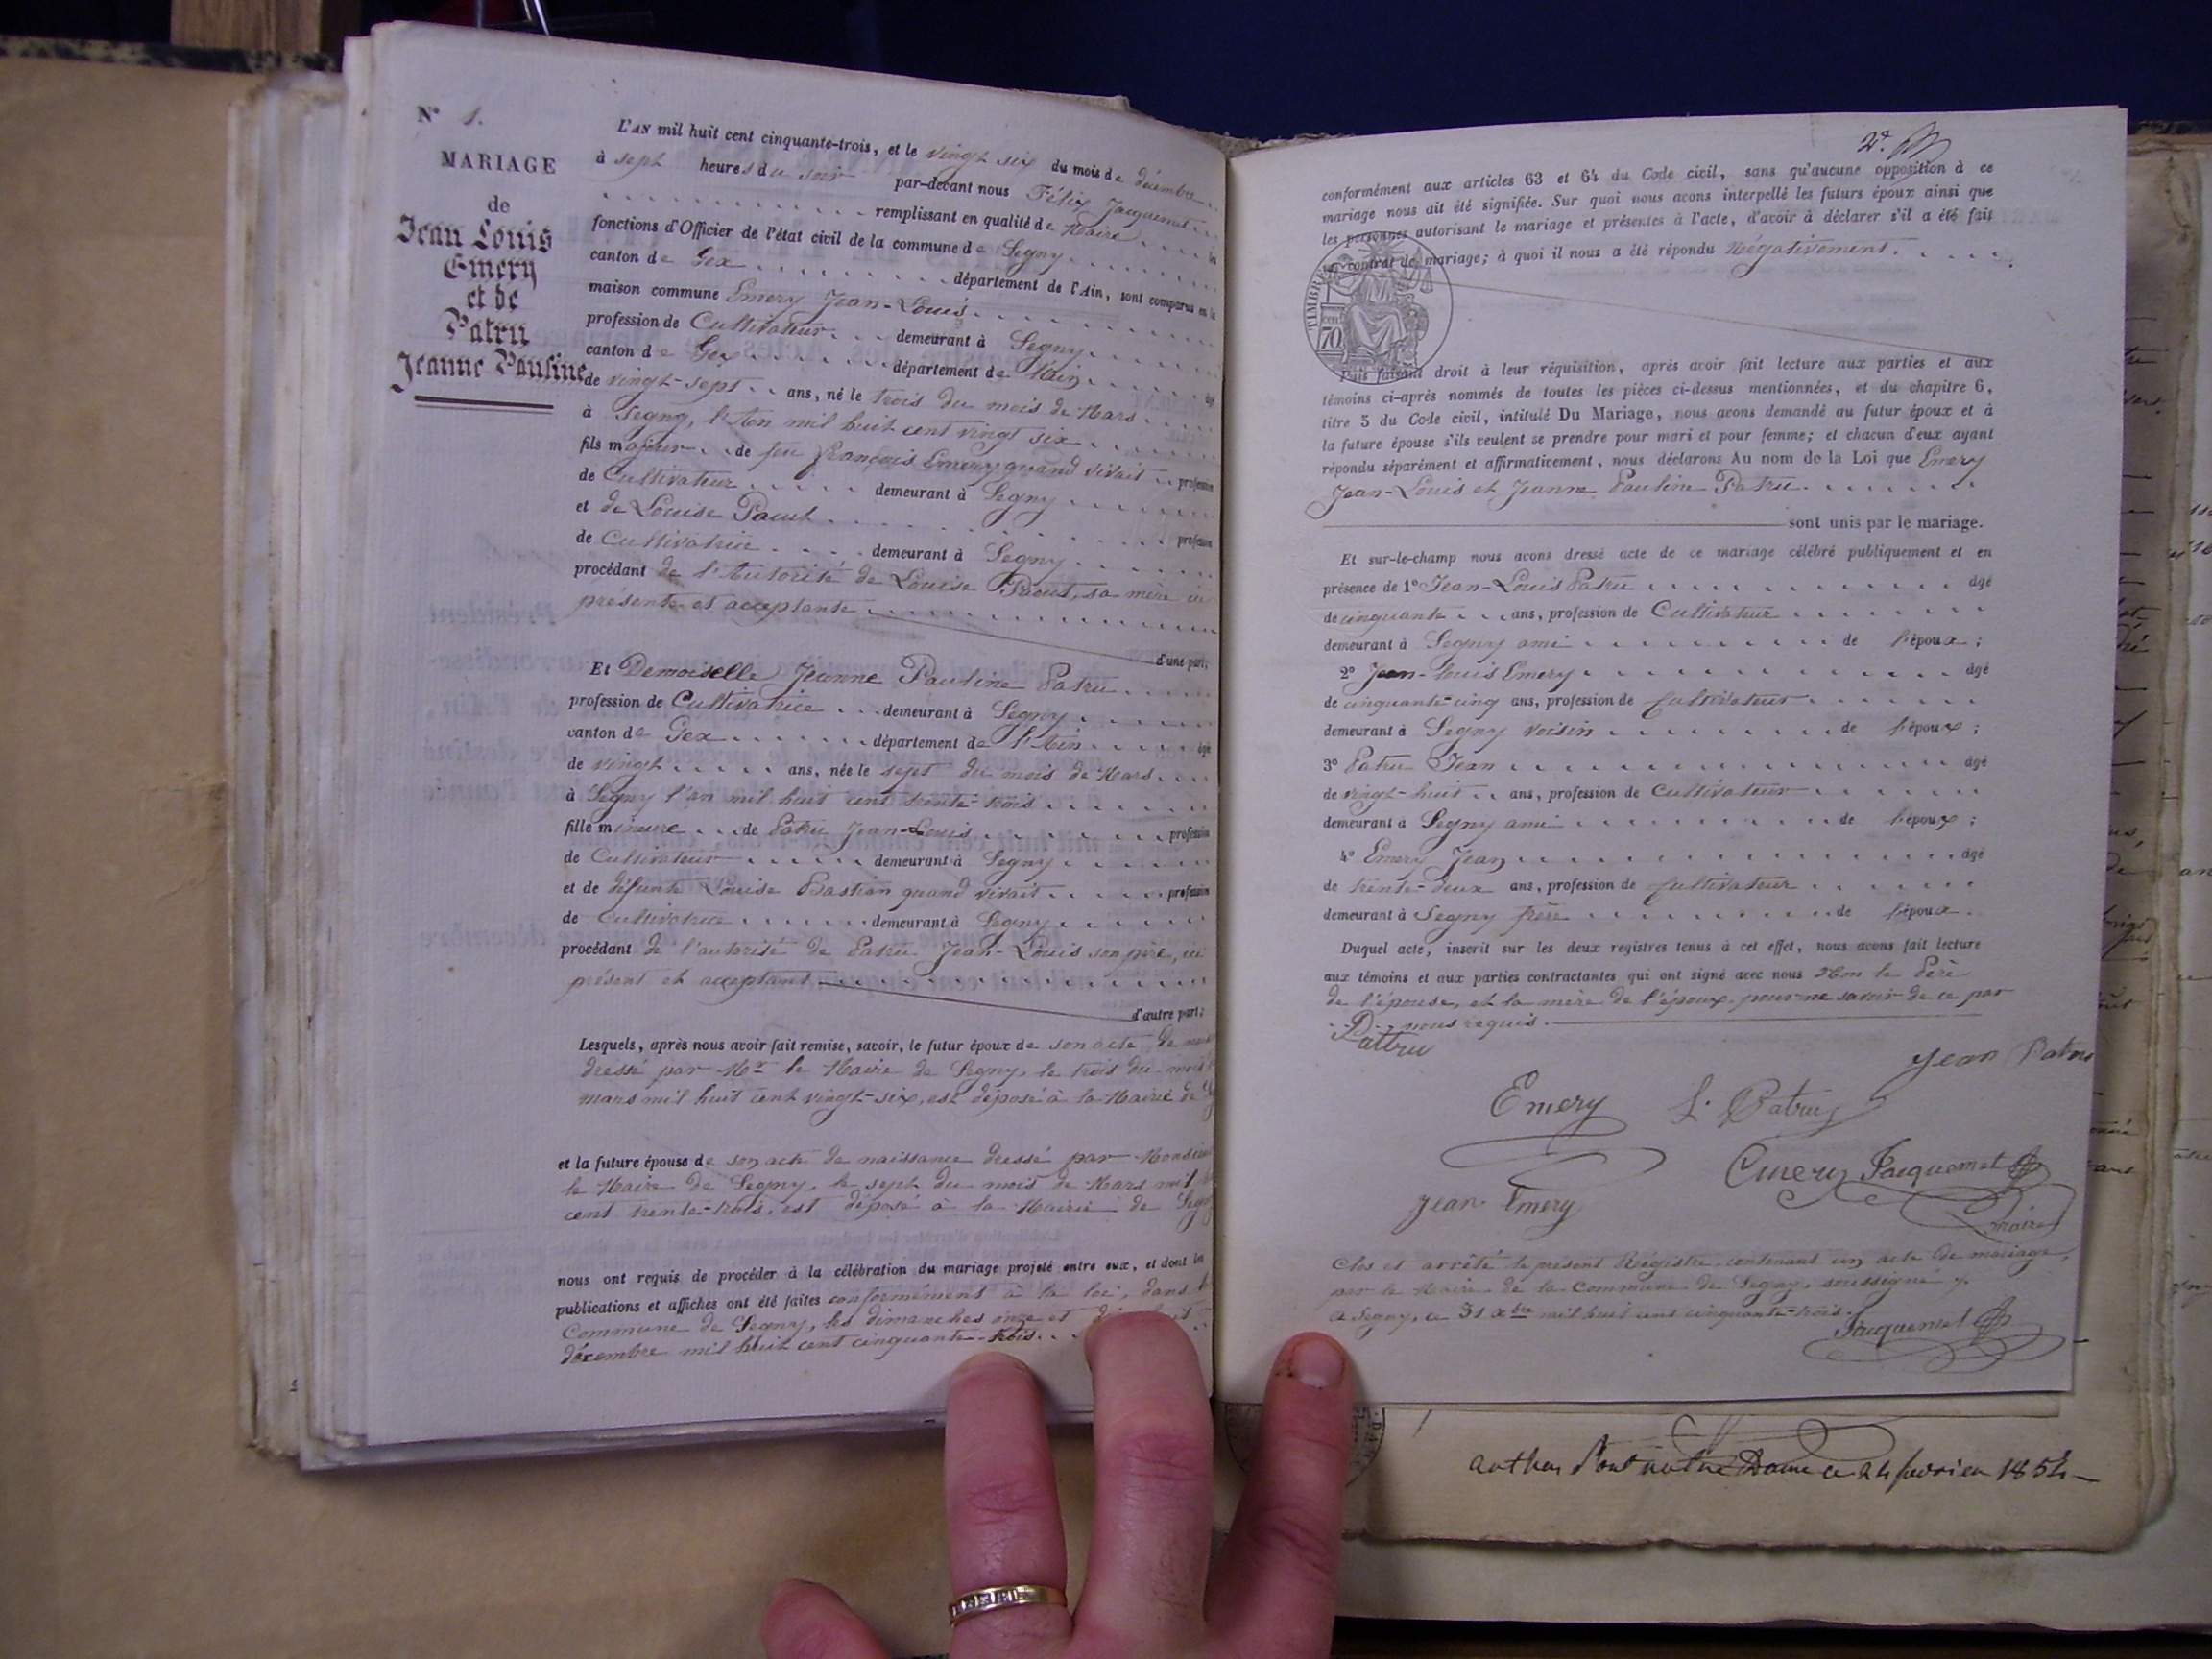 N° 1.
MARIAGE
de
Jean Louis
Emery
et de
Patru
Jeanne Pauline
L'AN mil huit cent cinquante-trois, et le vingt six du mois de décembre
à sept heures du soir par-devant nous Félix Jacquemet
remplissant en qualité de Maire les
fonctions d'Officier de l'état civil de la commune de Segny
canton de Gex département de l'Ain, sont comparus en la
maison commune Emery Jean-Louis
profession de Cultivateur demeurant à Segny
canton de Gex département de l'Ain
âgé de vingt-sept ans, né le trois du mois de Mars
à Segny, l'an mil huit cent vingt six
fils majeur de feu François Emery quand vivait profession
de Cultivateur demeurant à Segny
et de Louise
profession de Cultivatrice demeurant à Segny
procédant de l'Autorité de Louise sa mère ici
présente et acceptante
d'une part;
Et Demoiselle Jeanne Pauline Patru
profession de Cultivatrice demeurant à Segny
canton de Gex département de l'Ain âgée
de vingt ans, née le sept du mois de Mars
à Segny l'an mil huit cent trente-trois
fille mineure de Patru Jean-Louis profession
de Cultivateur demeurant à Segny
et de défunte Louise Bastian quand vivait profession
de Cultivatrice demeurant à Segny
procédant de l'autorité de Patru Jean-Louis son père, ici
présent et acceptant
d'autre part;
Lesquels, après nous avoir fait remise, savoir, le futur époux de son acte de
dressé par Mr le Maire de Segny, le trois du mois
mars mil huit cent vingt-six, est déposé à la Mairie de
et la future épouse de son acte de naissance dressé par Monsieur
le Maire de Segny, le sept du mois de Mars mil
cent trente-trois, est déposé à la Mairie de Segny
nous ont requis de procéder à la célébration du mariage projeté entre eux, et dont les
publications et affiches ont été faites conformément à la loi, dans la
Commune de Segny, les dimanches onze et
décembre mil huit cent cinquante-trois.
conformément aux articles 63 et 64 du Code civil, sans qu'aucune opposition à ce
mariage nous ait été signifiée. Sur quoi nous avons interpellé les futurs époux ainsi que
les personnes autorisant le mariage et présentes à l'acte, d'avoir à déclarer s'il a été fait
un contrat de mariage; à quoi il nous a été répondu Négativement.
TIMBRE
70 cent
Puis faisant droit à leur réquisition, après avoir fait lecture aux parties et aux
témoins ci-après nommés de toutes les pièces ci-dessus mentionnées, et du chapitre 6,
titre 5 du Code civil, intitulé Du Mariage, nous avons demandé au futur époux et à
la future épouse s'ils veulent se prendre pour mari et pour femme; et chacun d'eux ayant
répondu séparément et affirmativement, nous déclarons Au nom de la Loi que Emery
Jean-Louis et Jeanne Pauline Patru
sont unis par le mariage.
Et sur-le-champ nous avons dressé acte de ce mariage célébré publiquement et en
présence de 1° Jean-Louis Patru âgé
de cinquante ans, profession de Cultivateur
demeurant à Segny ami de l'époux;
2° Jean-Louis Emery âgé
de cinquante-cinq ans, profession de Cultivateur
demeurant à Segny voisin de l'époux;
3° Patru Jean âgé
de vingt-huit ans, profession de Cultivateur
demeurant à Segny ami de l'époux;
4° Emery Jean âgé
de trente-deux ans, profession de Cultivateur
demeurant à Segny frère de l'époux.
Duquel acte, inscrit sur les deux registres tenus à cet effet, nous avons fait lecture
aux témoins et aux parties contractantes qui ont signé avec nous Non le Père
de l'épouse, et la mère de l'époux pour ne savoir de ce par
nous requis.
Pattru
Jean Patru
Emery L. Patru
Emery Jacquemet
Jean Emery
maire
Clos et arrêté le présent Régistre contenant un acte de mariage,
par le Maire de la Commune de Segny, soussigné
à Segny, ce 31 xbre mil huit cent cinquante-trois.
Jacquemet
février 1854